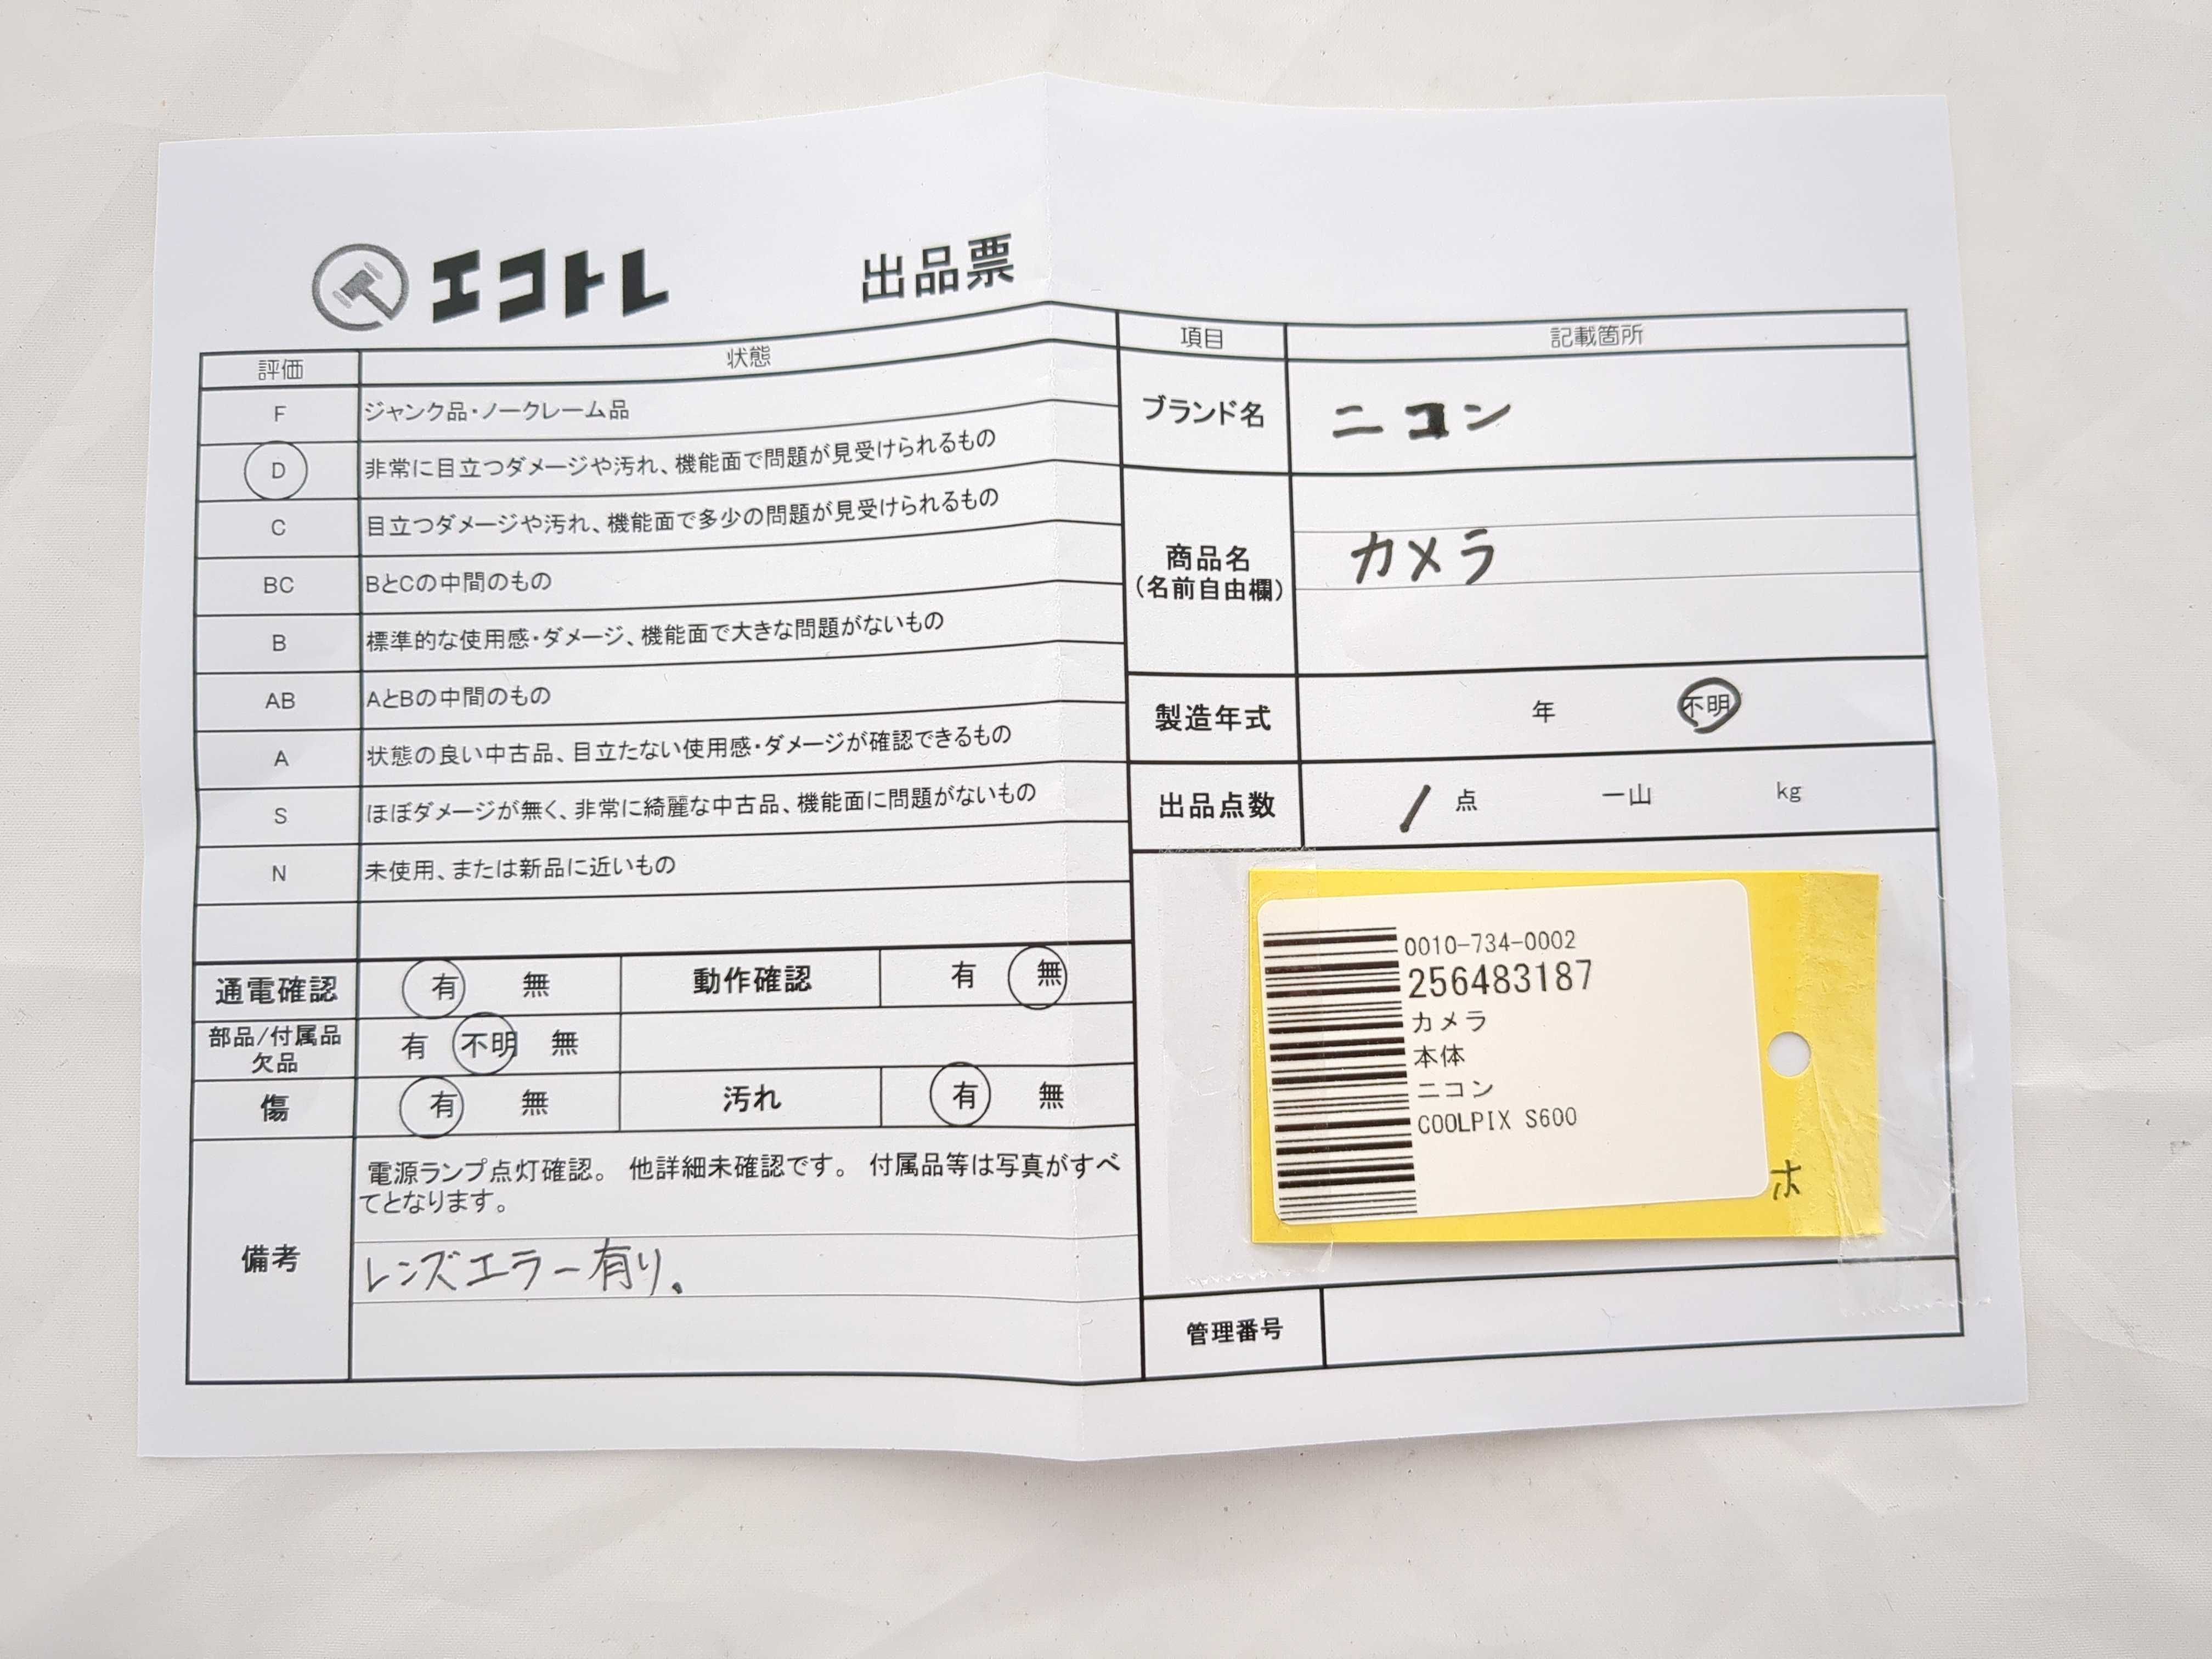 エコトレ 出品票
評価 状態
F ジャンク品・ノークレーム品
D 非常に目立つダメージや汚れ、機能面で問題が見受けられるもの
C 目立つダメージや汚れ、機能面で多少の問題が見受けられるもの
BC BとCの中間のもの
B 標準的な使用感・ダメージ、機能面で大きな問題がないもの
AB AとBの中間のもの
A 状態の良い中古品、目立たない使用感・ダメージが確認できるもの
S ほぼダメージが無く、非常に綺麗な中古品、機能面に問題がないもの
N 未使用、または新品に近いもの
通電確認 有 無 動作確認 有 無
部品/付属品
欠品 有 不明 無
傷 有 無 汚れ 有 無
備考
電源ランプ点灯確認。 他詳細未確認です。 付属品等は写真がすべ
てとなります。
レンズエラー有り。
項目 記載箇所
ブランド名 ニコン
商品名
(名前自由欄) カメラ
製造年式 年 不明
出品点数 1 点 一山 kg
0010-734-0002
256483187
カメラ
本体
ニコン
COOLPIX S600
ホ
管理番号